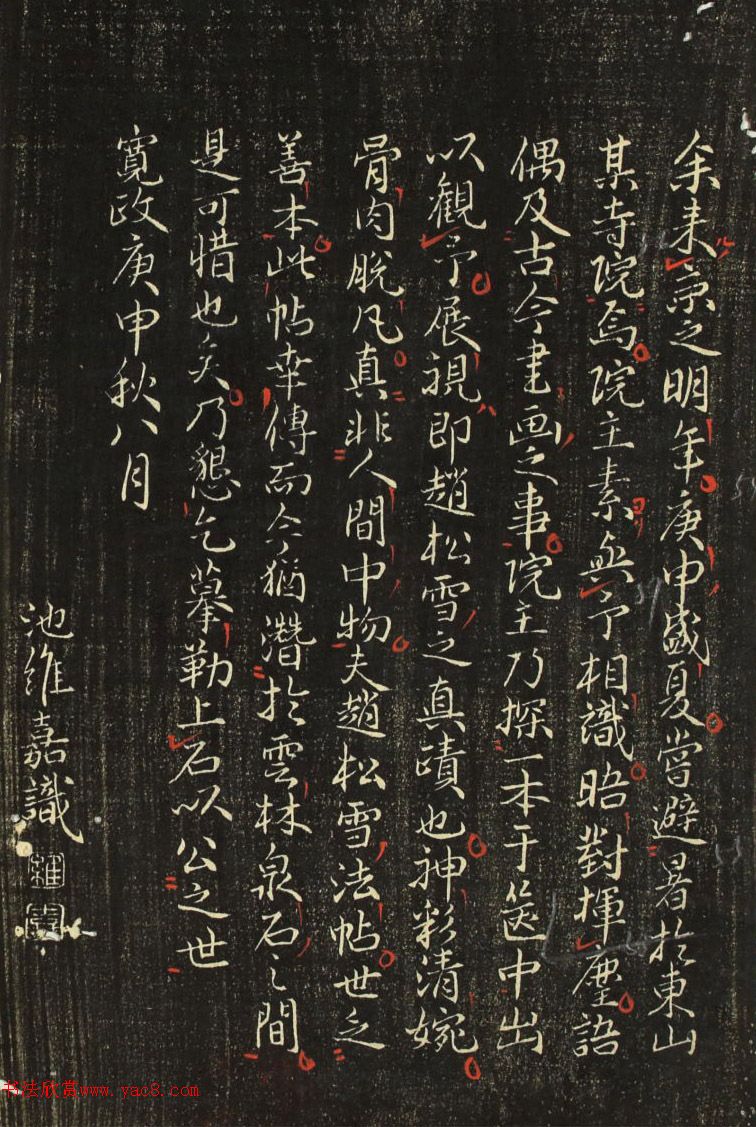 余耒京之明年庚申盛夏嘗避暑於東山
某寺院焉院主素與予相識晤對揮麈語
偶及古今書画之事院主乃探一本于篋中出
以觀予展視即趙松雪之真蹟也神彩清婉
骨肉脫凡真非人間中物夫趙松雪法帖世之
善本此帖幸傳而今猶潛於雲林泉石之間
是可惜也矣乃懇乞摹勒上石以公之世
寛政庚申秋八月
池維嘉識
书法欣赏www.yac8.com